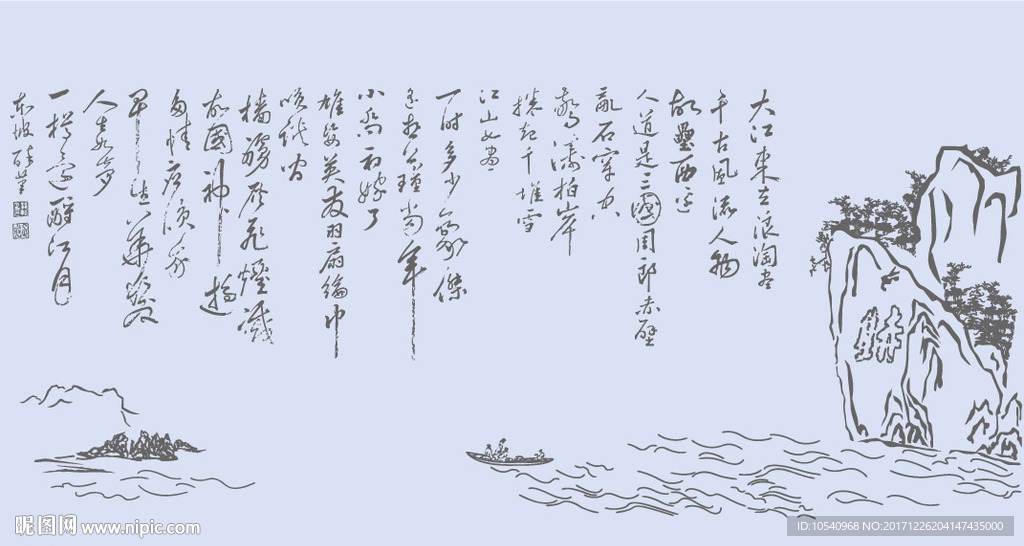 大江東去浪淘尽
千古風流人物
故壘西邊
人道是三國周郎赤壁
亂石穿空
驚濤拍岸
捲起千堆雪
江山如畫
一时多少豪傑
遙想公瑾當年
小喬初嫁了
雄姿英發羽扇綸巾
咲談間
檣艣灰飛煙滅
故國神遊
多情應咲我
早生華髮
人生如夢
一樽還酹江月
東坡醉筆
昵图网 www.nipic.com
ID:10540968 NO:20171226204147435000